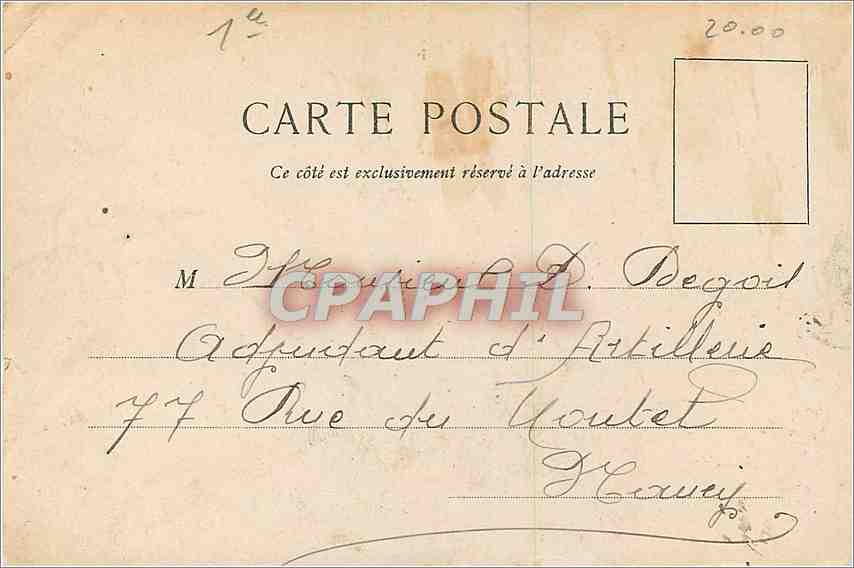 1re 20.00
CARTE POSTALE
Ce côté est exclusivement réservé à l'adresse
M Monsieur D. Degoil
CPAPHIL
Adjudant d'Artillerie
77 Rue du